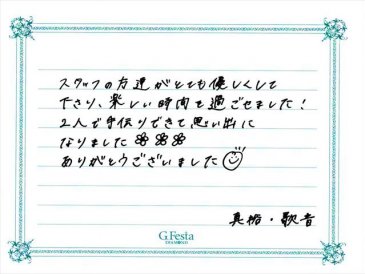 スタッフの方達がとても優しくして
下さり、楽しい時間を過ごせました!
2人で手作りできて思い出に
なりました
ありがとうございました
真裕・歌音
G.Festa
DIAMOND